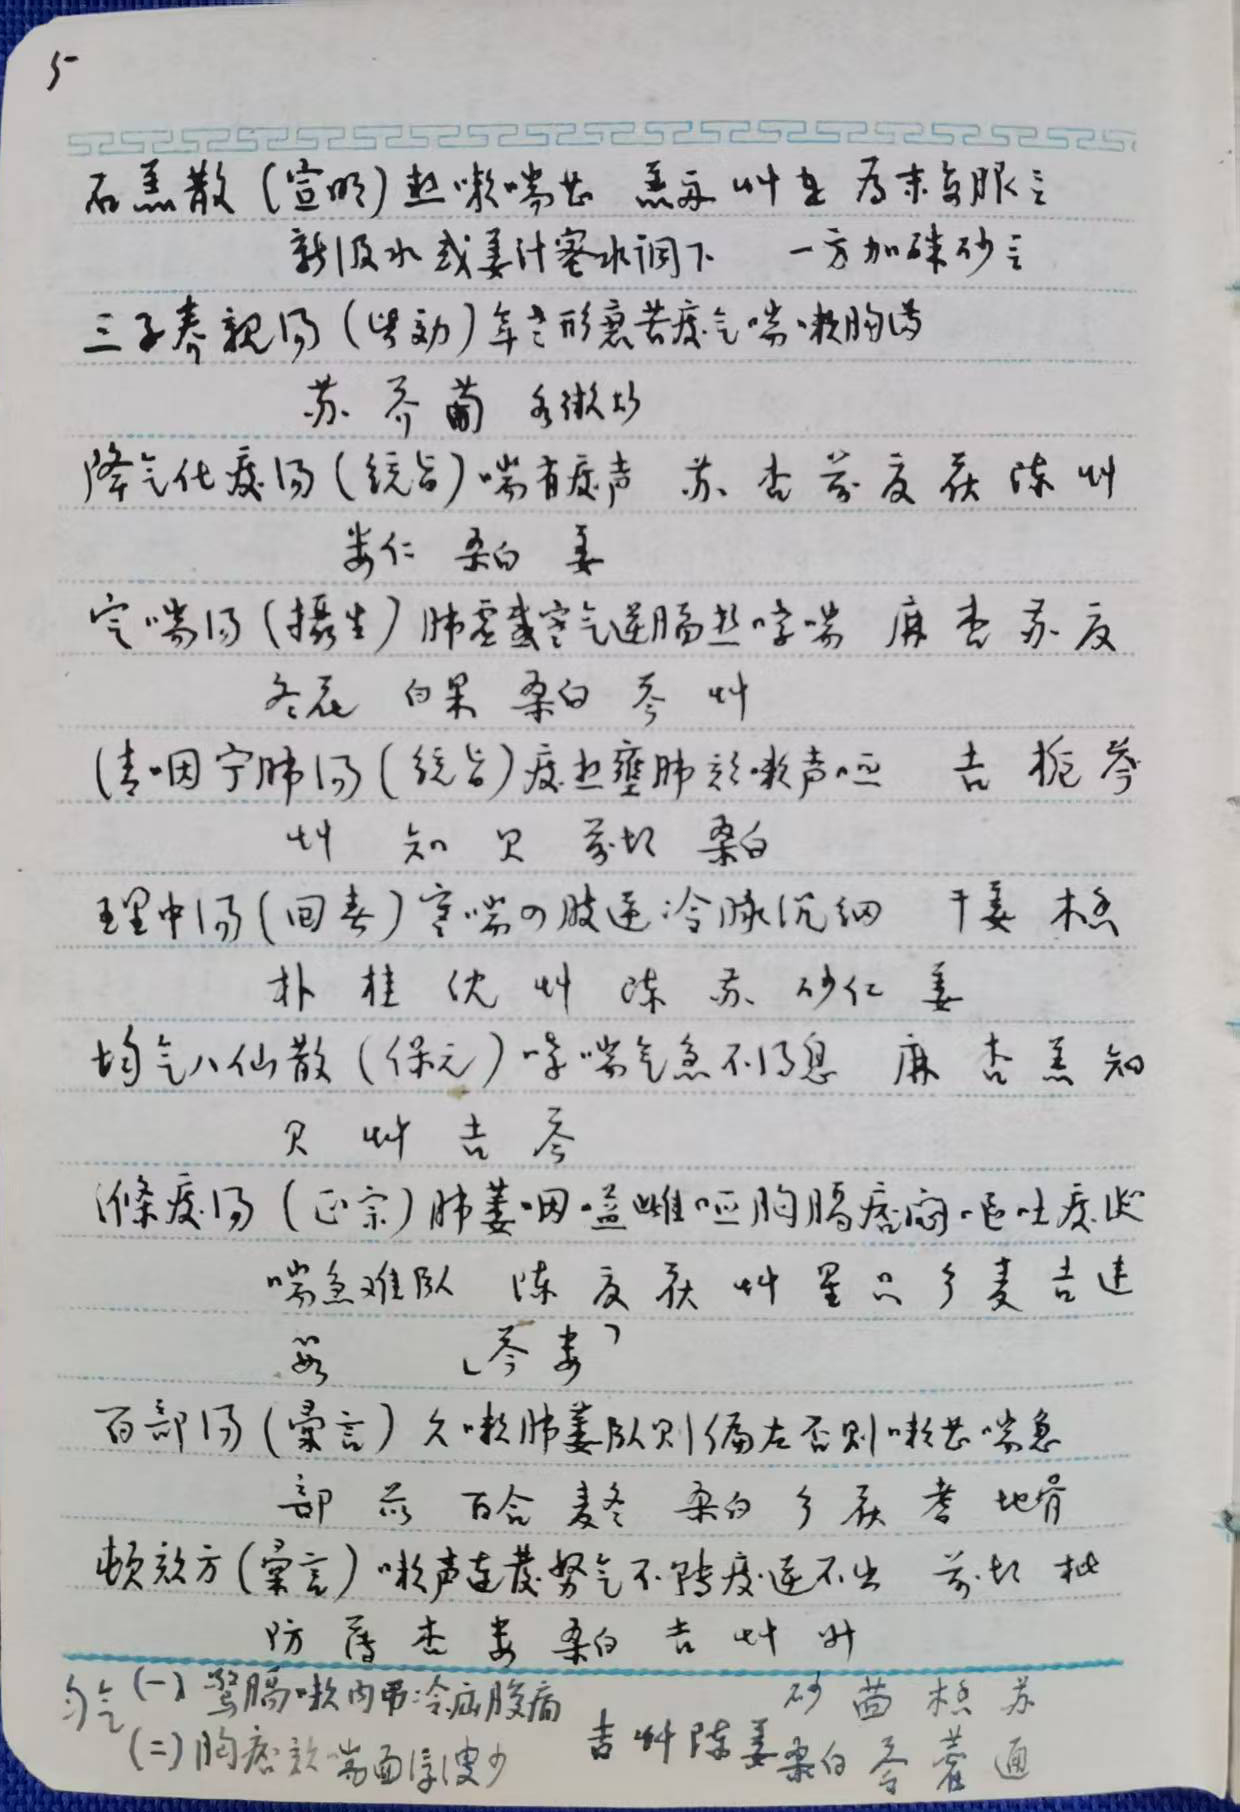 5
石羔散（宣明）热嗽喘甚 羔 艸 为末每服三
新汲水或姜汁蜜水调下 一方加硃砂三
三子养亲汤（皆効）年老形衰苦痰气喘嗽胸满
苏 芥 菔 各微炒
降气化痰汤（统旨）喘有痰声 苏 杏 前 夏 茯 陈 艸
娄仁 桑白 姜
定喘汤（摄生）肺虚感寒气逆膈热哮喘 麻 杏 苏 夏
冬花 白果 桑白 芩 艸
清咽宁肺汤（统旨）痰热壅肺咳嗽声哑 吉 栀 芩
艸 知 贝 前胡 桑白
理中汤（回春）寒喘四肢逆冷脉沉细 干姜 木香
朴 桂 沈 艸 陈 苏 砂仁 姜
均气八仙散（保元）哮喘气急不得息 麻 杏 羔 知
贝 艸 吉 芩
涤痰汤（正宗）肺萎咽嗌雌哑胸膈痞闷呕吐痰涎
喘急难臥 陈 夏 茯 艸 星 只 参 麦 吉 连
芩 娄
百部汤（彙言）久嗽肺萎臥则偏左否则嗽甚喘急
部 苡 百合 麦冬 桑白 参 茯 耆 地骨
顿効方（彙言）嗽声连发努气不转痰逆不出 前胡 枇
防 薄 杏 娄 桑白 吉 艸 叶
匀气（一）惊膈嗽内吊冷疝腹痛 砂 茴 木香 苏
（二）胸痞咳喘面浮溲少 吉 艸 陈 姜 桑白 苓 藿 通